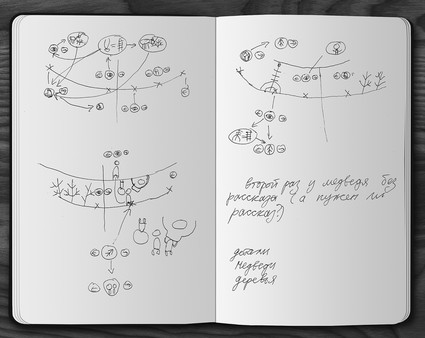 второй раз у медведя без
рассказы (а нужен ли
рассказ?)
детали
медведи
деревья